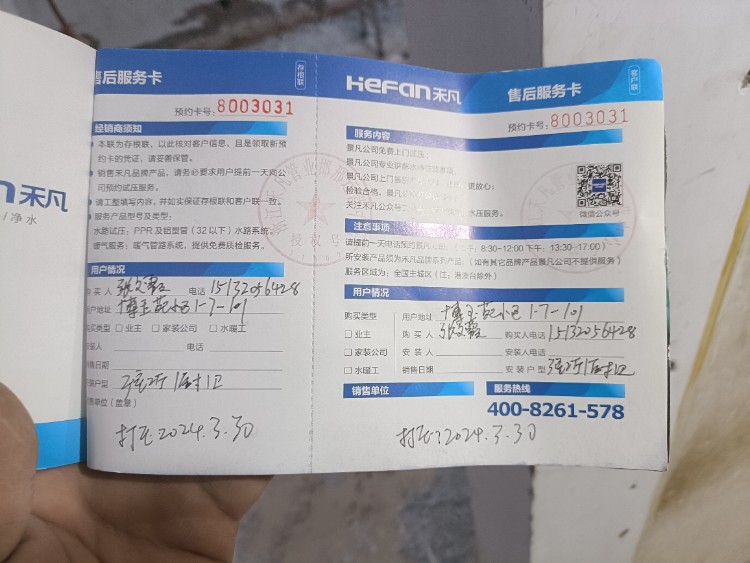 禾凡
/净水
售后服务卡
存根联
预约卡号：8003031
经销商须知
本联为存根联，以此核对客户信息，且是领取新预
约卡的凭证，请妥善保管。
销售禾凡品牌产品，请务必要求用户提前一天向公
司预约试压服务。
请工整填写内容，并如实保证存根联和客户联一致。
服务产品型号及类型：
水路试压：PPR及铝塑管（32以下）水路系统；
暖气服务：暖气管路系统，提供免费质检服务。
用户情况
购买人 电话 15132056428
用户地址 博玉苑小区1-7-101
购买类型 □业主 □家装公司 □水暖工
安装人 电话
销售日期
安装户型
销售单位（盖章）
打压2024.3.30
Hefan禾凡
售后服务卡
客户联
预约卡号：8003031
服务内容
景凡公司免费上门试压；
景凡公司专业讲解
景凡公司上门 更放心；
检验合格，景凡公
关注禾凡公众号 水压服务。
微信公众号
注意事项
请提前一天电话预约景凡 8:30-12:00 下午：13:30-17:00）
所安装产品须为禾凡品牌系列产品；（如有其它品牌产品景凡公司不提供服务）
服务区域为：全国主城区（注：港澳台除外）
用户情况
购买类型 用户地址 博玉苑小区1-7-101
□业主 购买人 购买人电话 15132056428
□家装公司 安装人 安装人电话
□水暖工 销售日期 安装户型
销售单位
服务热线
400-8261-578
打压：2024.3.30